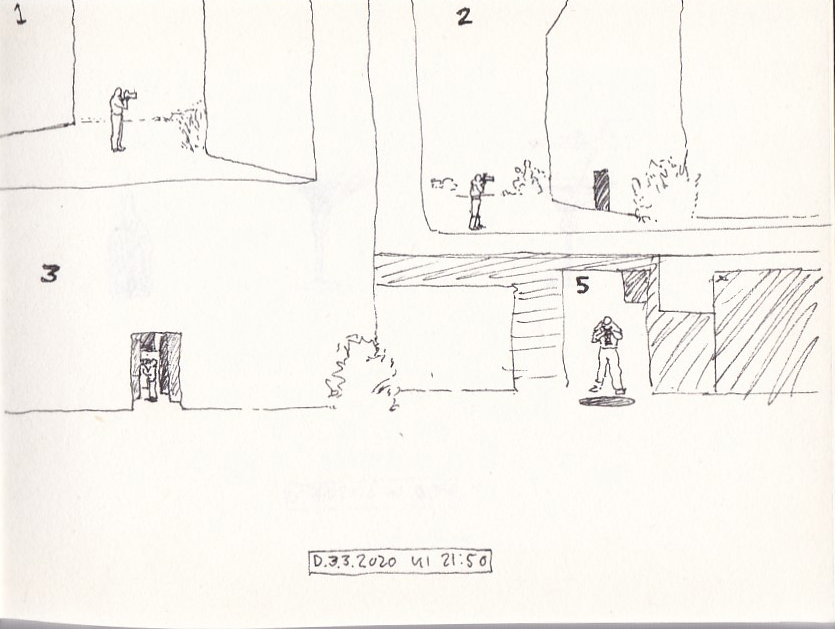 1
2
3
5
D.3.3.2020 UI 21:50